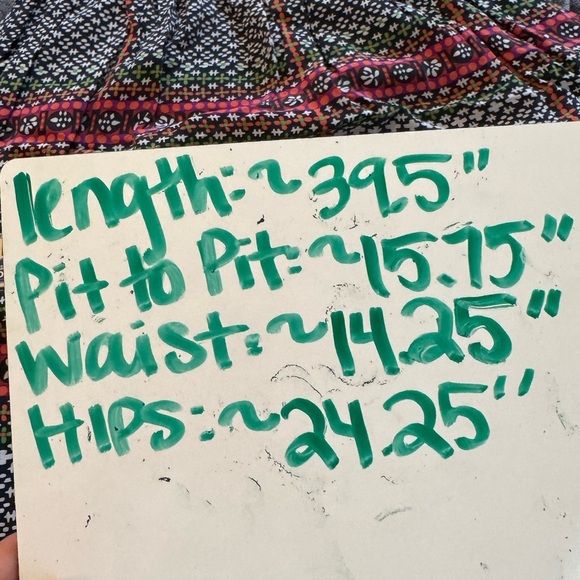 length: ~39.5"
Pit to Pit: ~15.75"
Waist: ~14.25"
Hips: ~24.25"